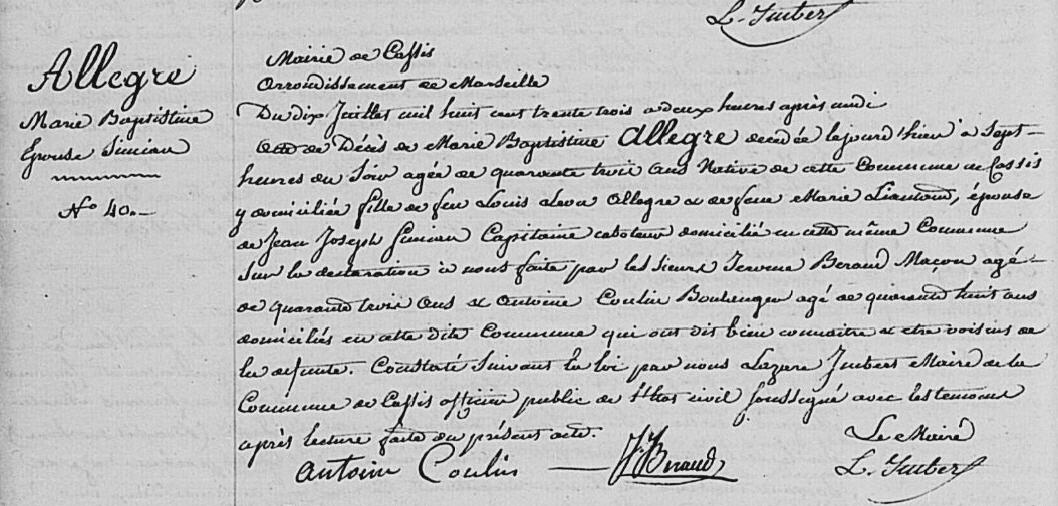 L. Imbert
Allegre
Marie Baptistine
Epouse Simian
N.o 40.
Mairie de Cassis
Arrondissement de Marseille
Du dix Juillet mil huit cent trente trois a deux heures après midi
Acte de Décès de Marie Baptistine Allegre decedée lejourd'hier à Sept
heures du Soir agée de quarante trois ans Native de cette Commune de Cassis
y domiciliée fille de feu Louis Leon Allegre et de feue Marie Liautaud, épouse
de Jean Joseph Simian Capitaine caboteur domicilié en cette même Commune
Sur la declaration à nous faite par les sieurs Jerome Beraud Maçon agé
de quarante trois ans et Antoine Coulin Boulenger agé de quarante huit ans
domiciliés en cette dite Commune qui ont dit bien connaitre et etre voisins de
la defunte. Constaté Suivant la loi par nous Lazare Imbert Maire de la
Commune de Cassis officier public de l'état civil soussigné avec les temoins
après lecture faite du présent acte.
Antoin Coulin J. Beraud
Le Maire
L. Imbert